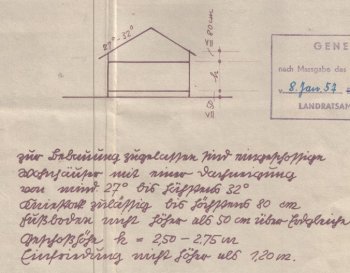 27°-32°
≦ 80 cm
h
GENE
nach Massgabe des
v. 8. Jan. 57
LANDRATSAM
zur Bebauung zugelassen sind eingeschossige
Wohnhäuser mit einer Dachneigung
von mind 27° bis höchstens 32°
Kniestock zulässig bis höchstens 80 cm
Fußboden nicht höher als 50 cm über Erdgleiche
Geschoßhöhe h = 2,50 - 2,75 m
Einfriedung nicht höher als 1,20 m.